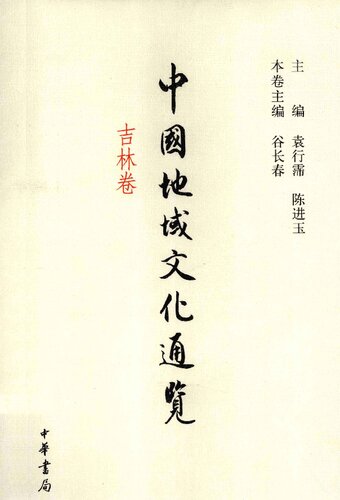 主编 袁行霈 陈进玉
本卷主编 谷长春
中國地域文化通覽
吉林卷
中華書局